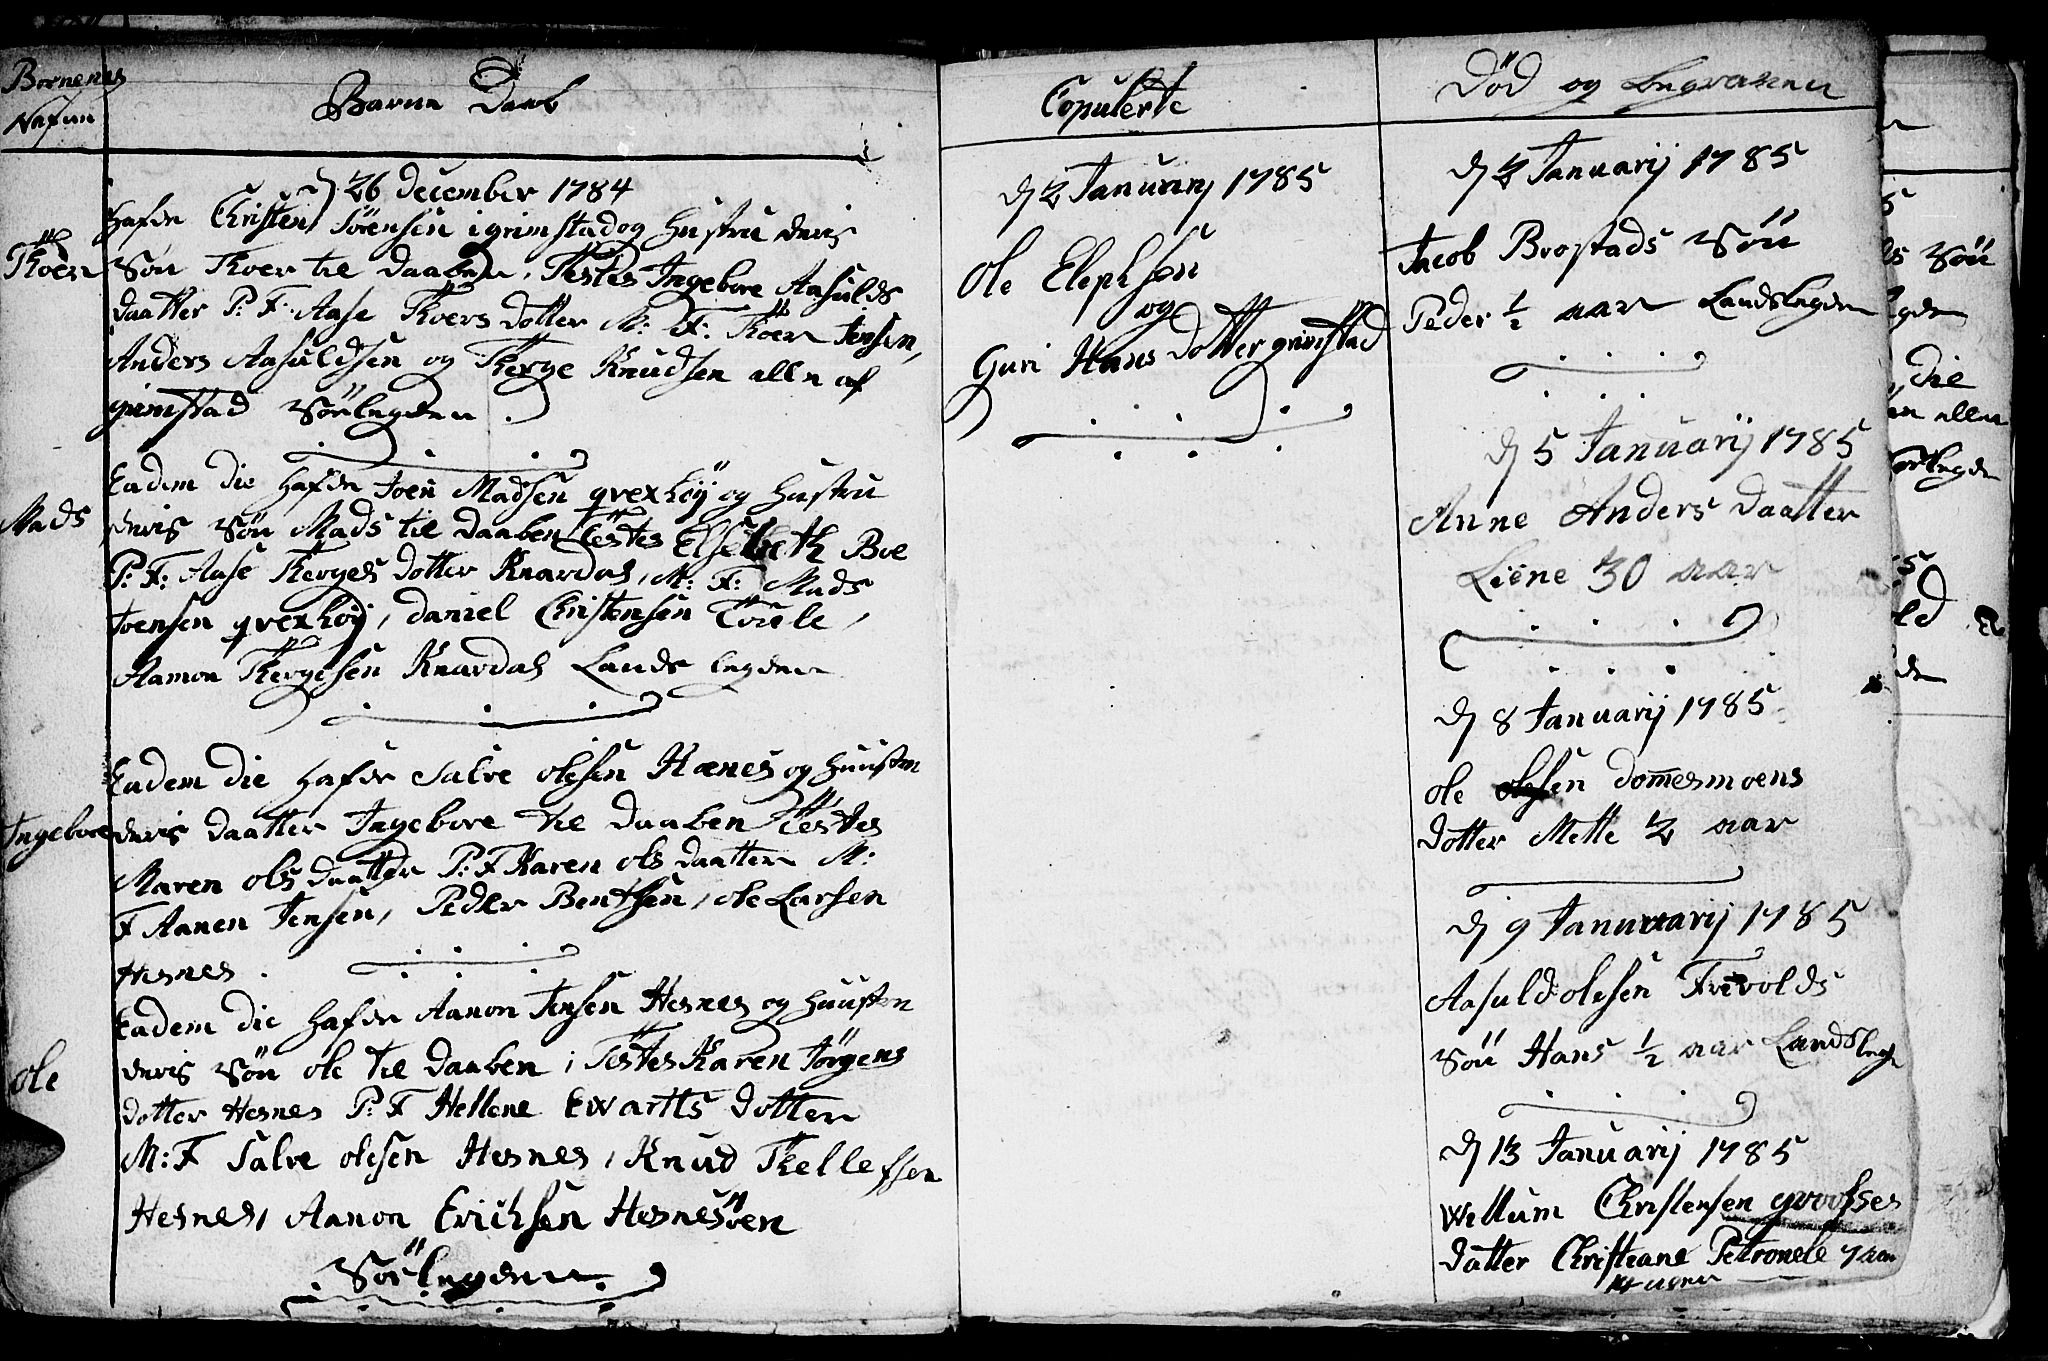 Bornenes
Nafun
Barne Daab
d 26 december 1784
hafde Christen Sörensen i grimstad og hustru deris
Thoer
Sön Thoer til daaben, Testes Ingebore Aasulds
daatter P: F: Aase Thoers dotter M: F: Thoer Jensen,
Anders Aasuldsen og Therge Knudsen alle af
grimstad Sörlegden.
Eadem die hafde Joen Madsen grexhöÿ og hustru
Mads
deris Sön Mads til daaben Testes Elsebeth Boe
P: F: Aase Therges dotter Knardal, M: F: Mads
Joensen grexhöÿ, daniel Christensen Törele,
Aamon Thergesen Knardal Lands legden
Eadem die hafde Salve olesen Hesnes og huusten
Ingebore
deris daatter Ingebore til daaben Testes
Maren ols daatter P: F Karen ols daatter M:
F Aanen Jensen, Peder Bentsen, ole Larsen
Hesnes.
Eadem die hafde Aanon Jensen Hesnes og huusten
Ole
deris Sön ole til daaben, Testes Karen Jörgens
dotter Hesnes P: F Hellene Ewartts dotter
M: F Salve olesen Hesnes, Knud Thellefsen
Hesnes, Aanon Erichsen Hesnesöen
Sörlegden
Copulerte
d 2 Januarij 1785
Ole Elephsen
og
Guri Hans dotter grimstad
Död og begravne
d 2 Januarij 1785
Jacob Brostads Sön
Peder ½ aar Landslegden
d 5 Januarij 1785
Anne Anders daatter
Liene 30 aar
d 8 Januarij 1785
ole olesen dommesmoens
dotter Mette ½ aar
d 9 Januarij 1785
Aasuld olesen Frivolds
Sön Hans ½ aar Landsleg
d 13 Januarij 1785
Wellum Christensen grooses
datter Christiane Petronele 7 aar
5
Sön
gden
die
allen
Sörlegden
5
old
den